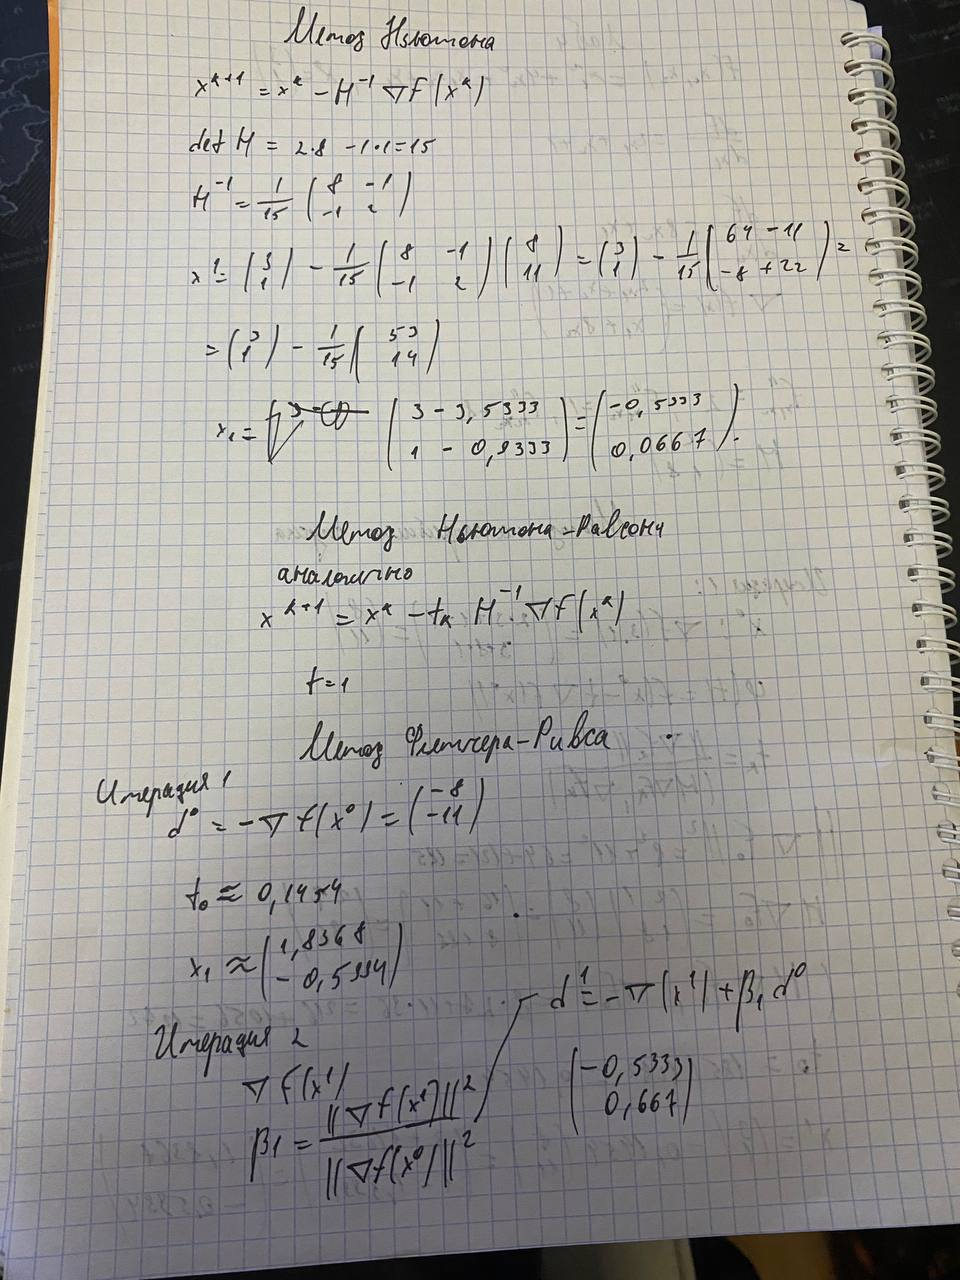 Метод Ньютона
x^{k+1} = x^k - H^{-1} ∇f(x^k)
det H = 2·8 - 1·1 = 15
H^{-1} = 1/15 (8 -1; -1 2)
x^1 = (3; 1) - 1/15 (8 -1; -1 2) (8; 11) = (3; 1) - 1/15 (64 - 11; -8 + 22) =
= (3; 1) - 1/15 (53; 14)
x_1 = (3 - 3,5333; 1 - 0,9333) = (-0,5333; 0,0667).
Метод Ньютона-Равсона
аналогично
x^{k+1} = x^k - t_k H^{-1} ∇f(x^k)
t = 1
Метод Флетчера-Ривса
Итерация 1
d^0 = -∇f(x^0) = (-8; -11)
t_0 ≈ 0,1454
x_1 ≈ (1,8368; -0,5994)
Итерация 2
∇f(x^1)
β_1 = ||∇f(x^1)||^2 / ||∇f(x^0)||^2
d^1 = -∇(x^1) + β_1 d^0
(-0,5333; 0,667)